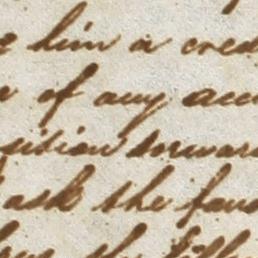 him a cred
of any acc
sition forward
ask the fav
the